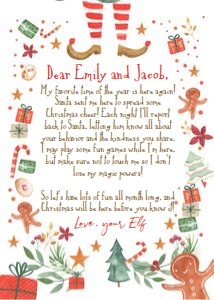 Dear Emily and Jacob,
My favorite time of the year is here again!
Santa sent me here to spread some
Christmas cheer! Each night I'll report
back to Santa, letting him know all about
your behavior and the kindness you share.
I may play some fun games while I'm here,
but make sure not to touch me so I don't
lose my magic powers!
So let's have lots of fun all month long, and
Christmas will be here before you know it!
Love, your Elf